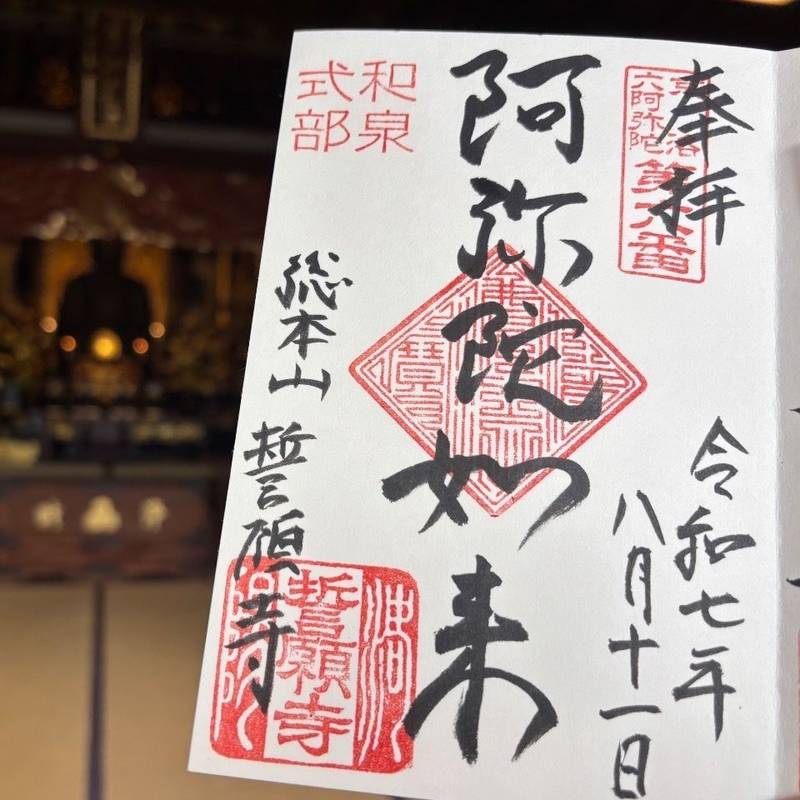 奉拝
六阿弥陀
第六番
令和七年
八月十一日
阿弥陀如来
和泉
式部
総本山 誓願寺
誓願寺